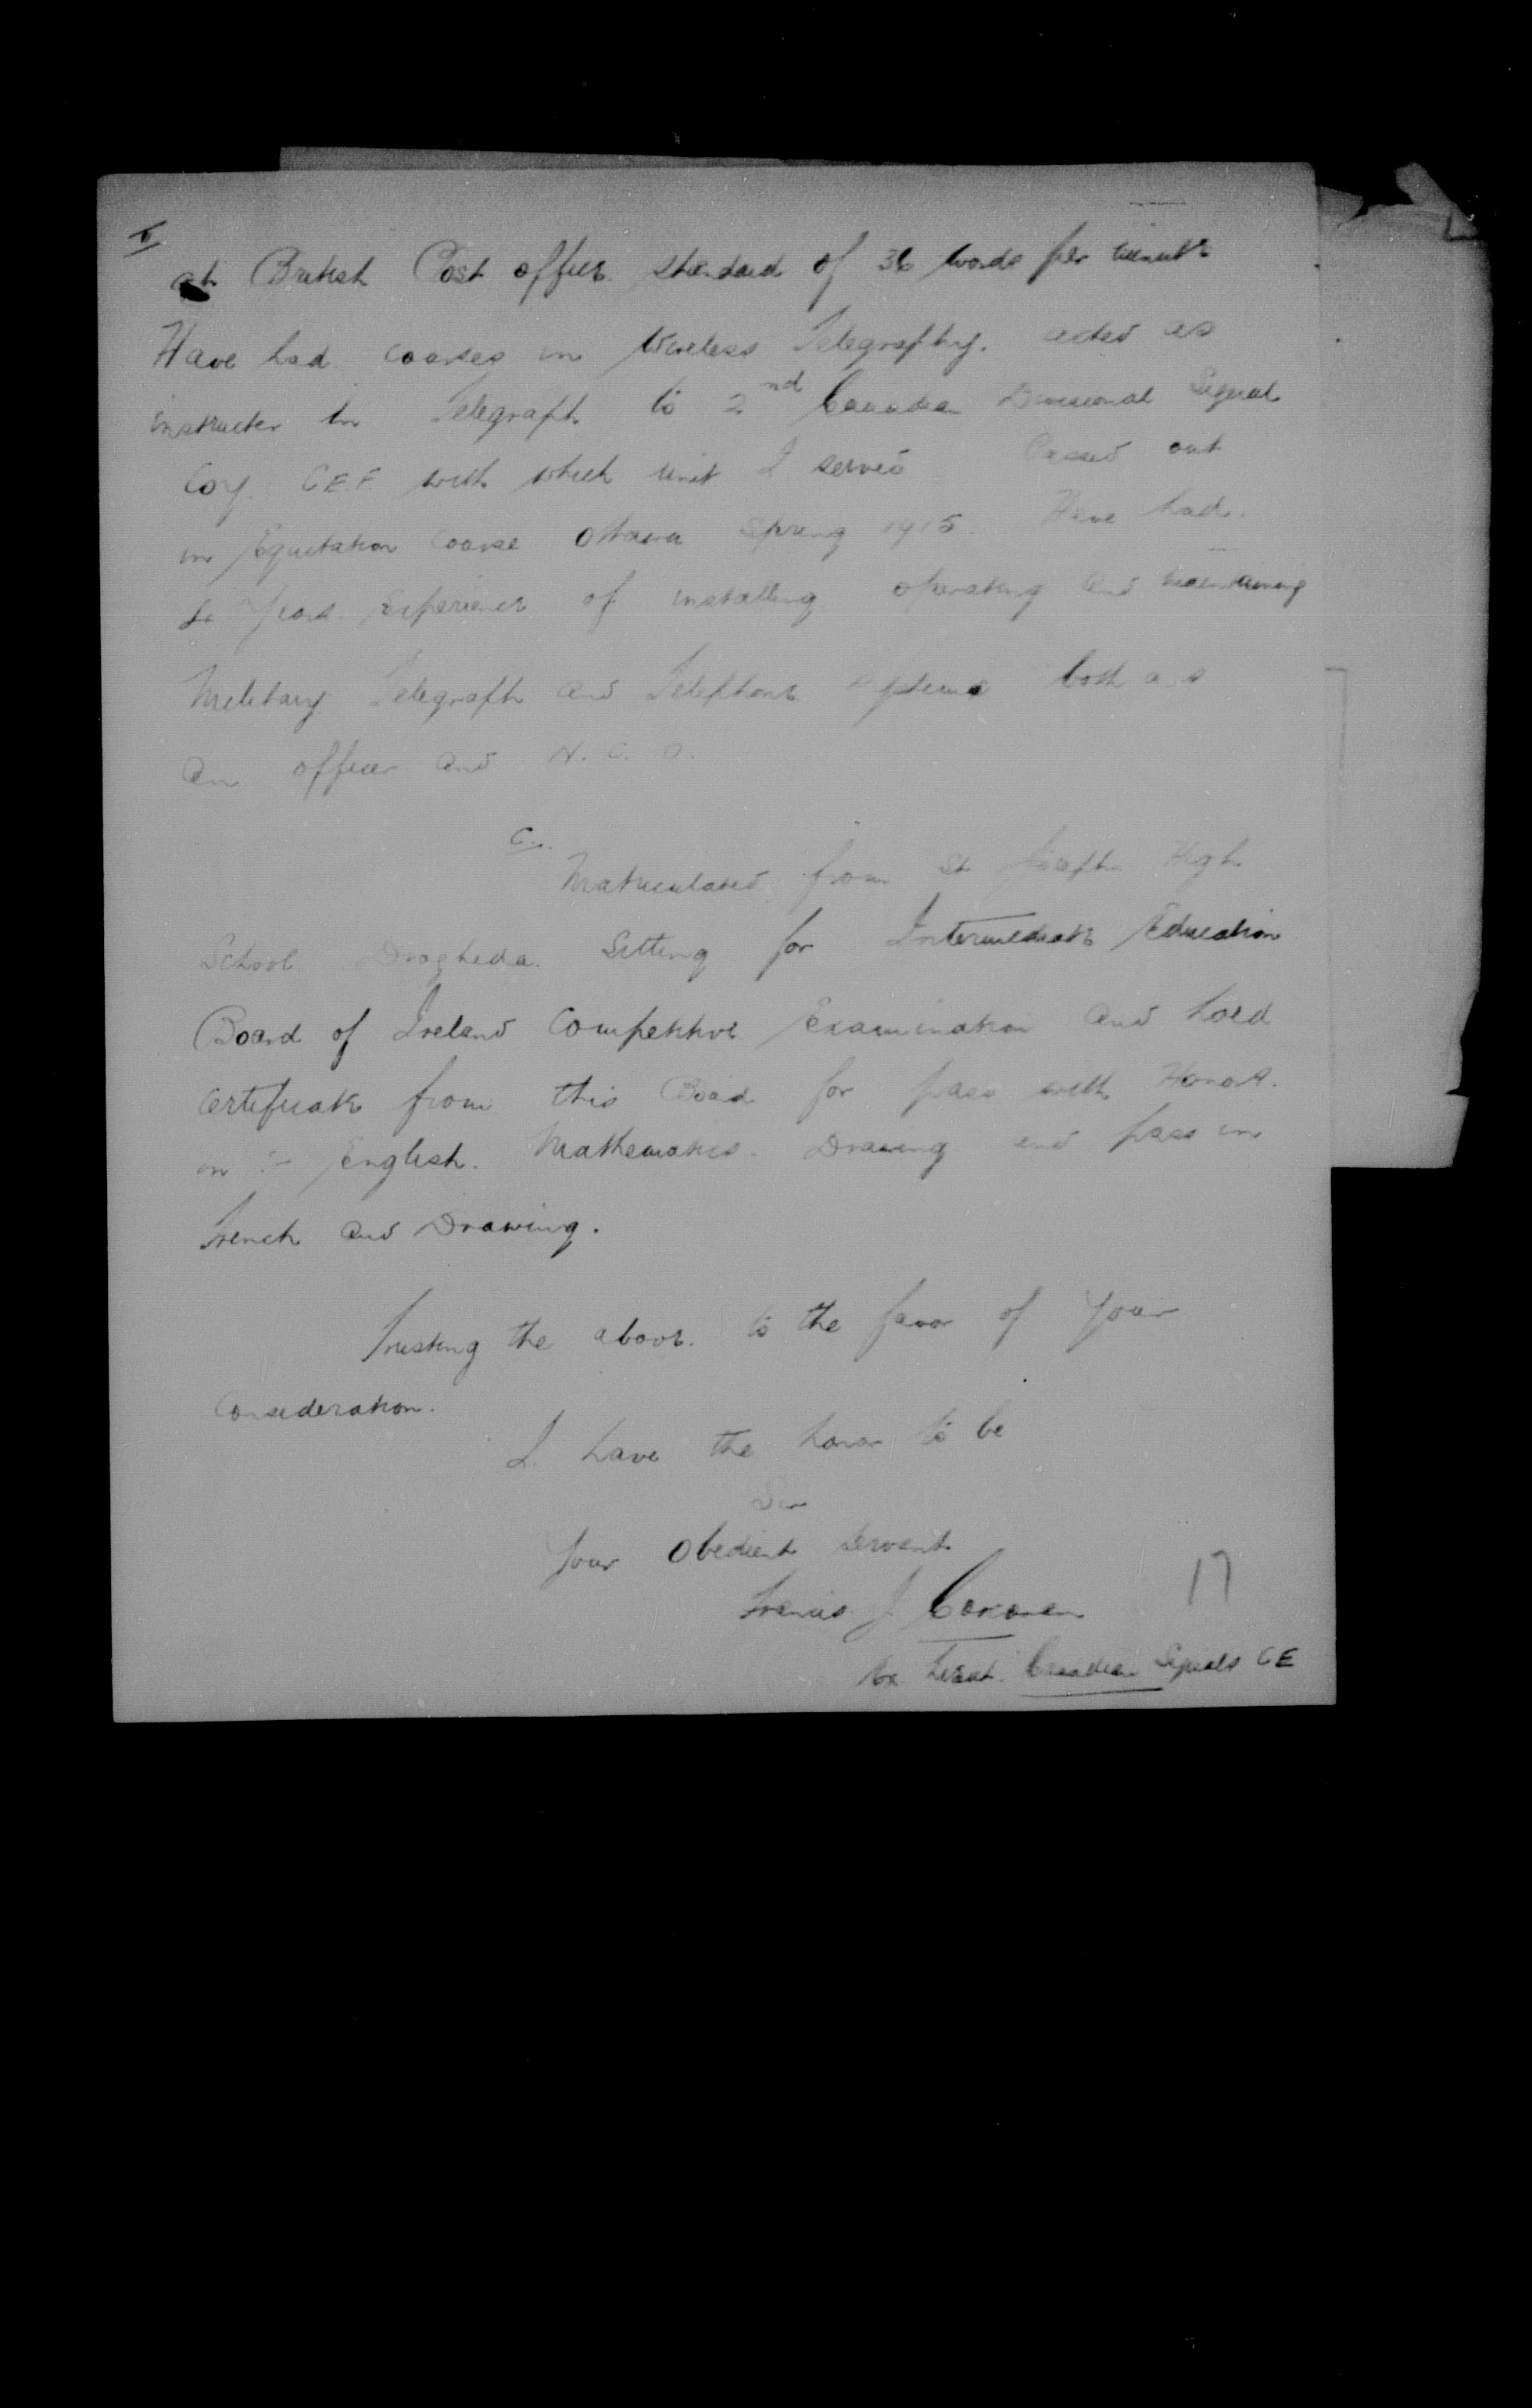 at British Post office standard of 36 words per minute
Have had courses in Wireless Telegraphy. acted as
instructer in Telegraph to 2nd Canadian Divisional Signal
Coy. C.E.F. with which unit I served Passed out
in Equitation Course Ottawa Spring 1915. Have had
years Experience of installing operating and maintaining
Military Telegraph and Telephone Systems both as
an officer and N.C.O.
C.
Matriculated from St Josephs High
School Drogheda. Sitting for Intermediate Education
Board of Ireland Competitive Examination and hold
Certificate from this Board for pass with Honors
in :- English. Mathematics. Drawing and pass in
French and Drawing.
Trusting the above. to the favor of your
Consideration.
I have the honor to be
Sir
Your Obedient Servant
Francis J. Corcoran
Ex Lieut. Canadian Signals CE
17